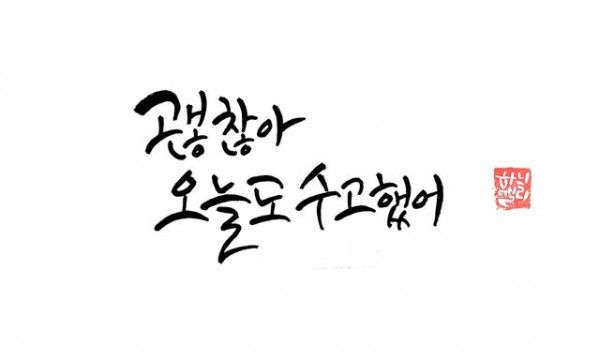 괜찮아
오늘도 수고했어